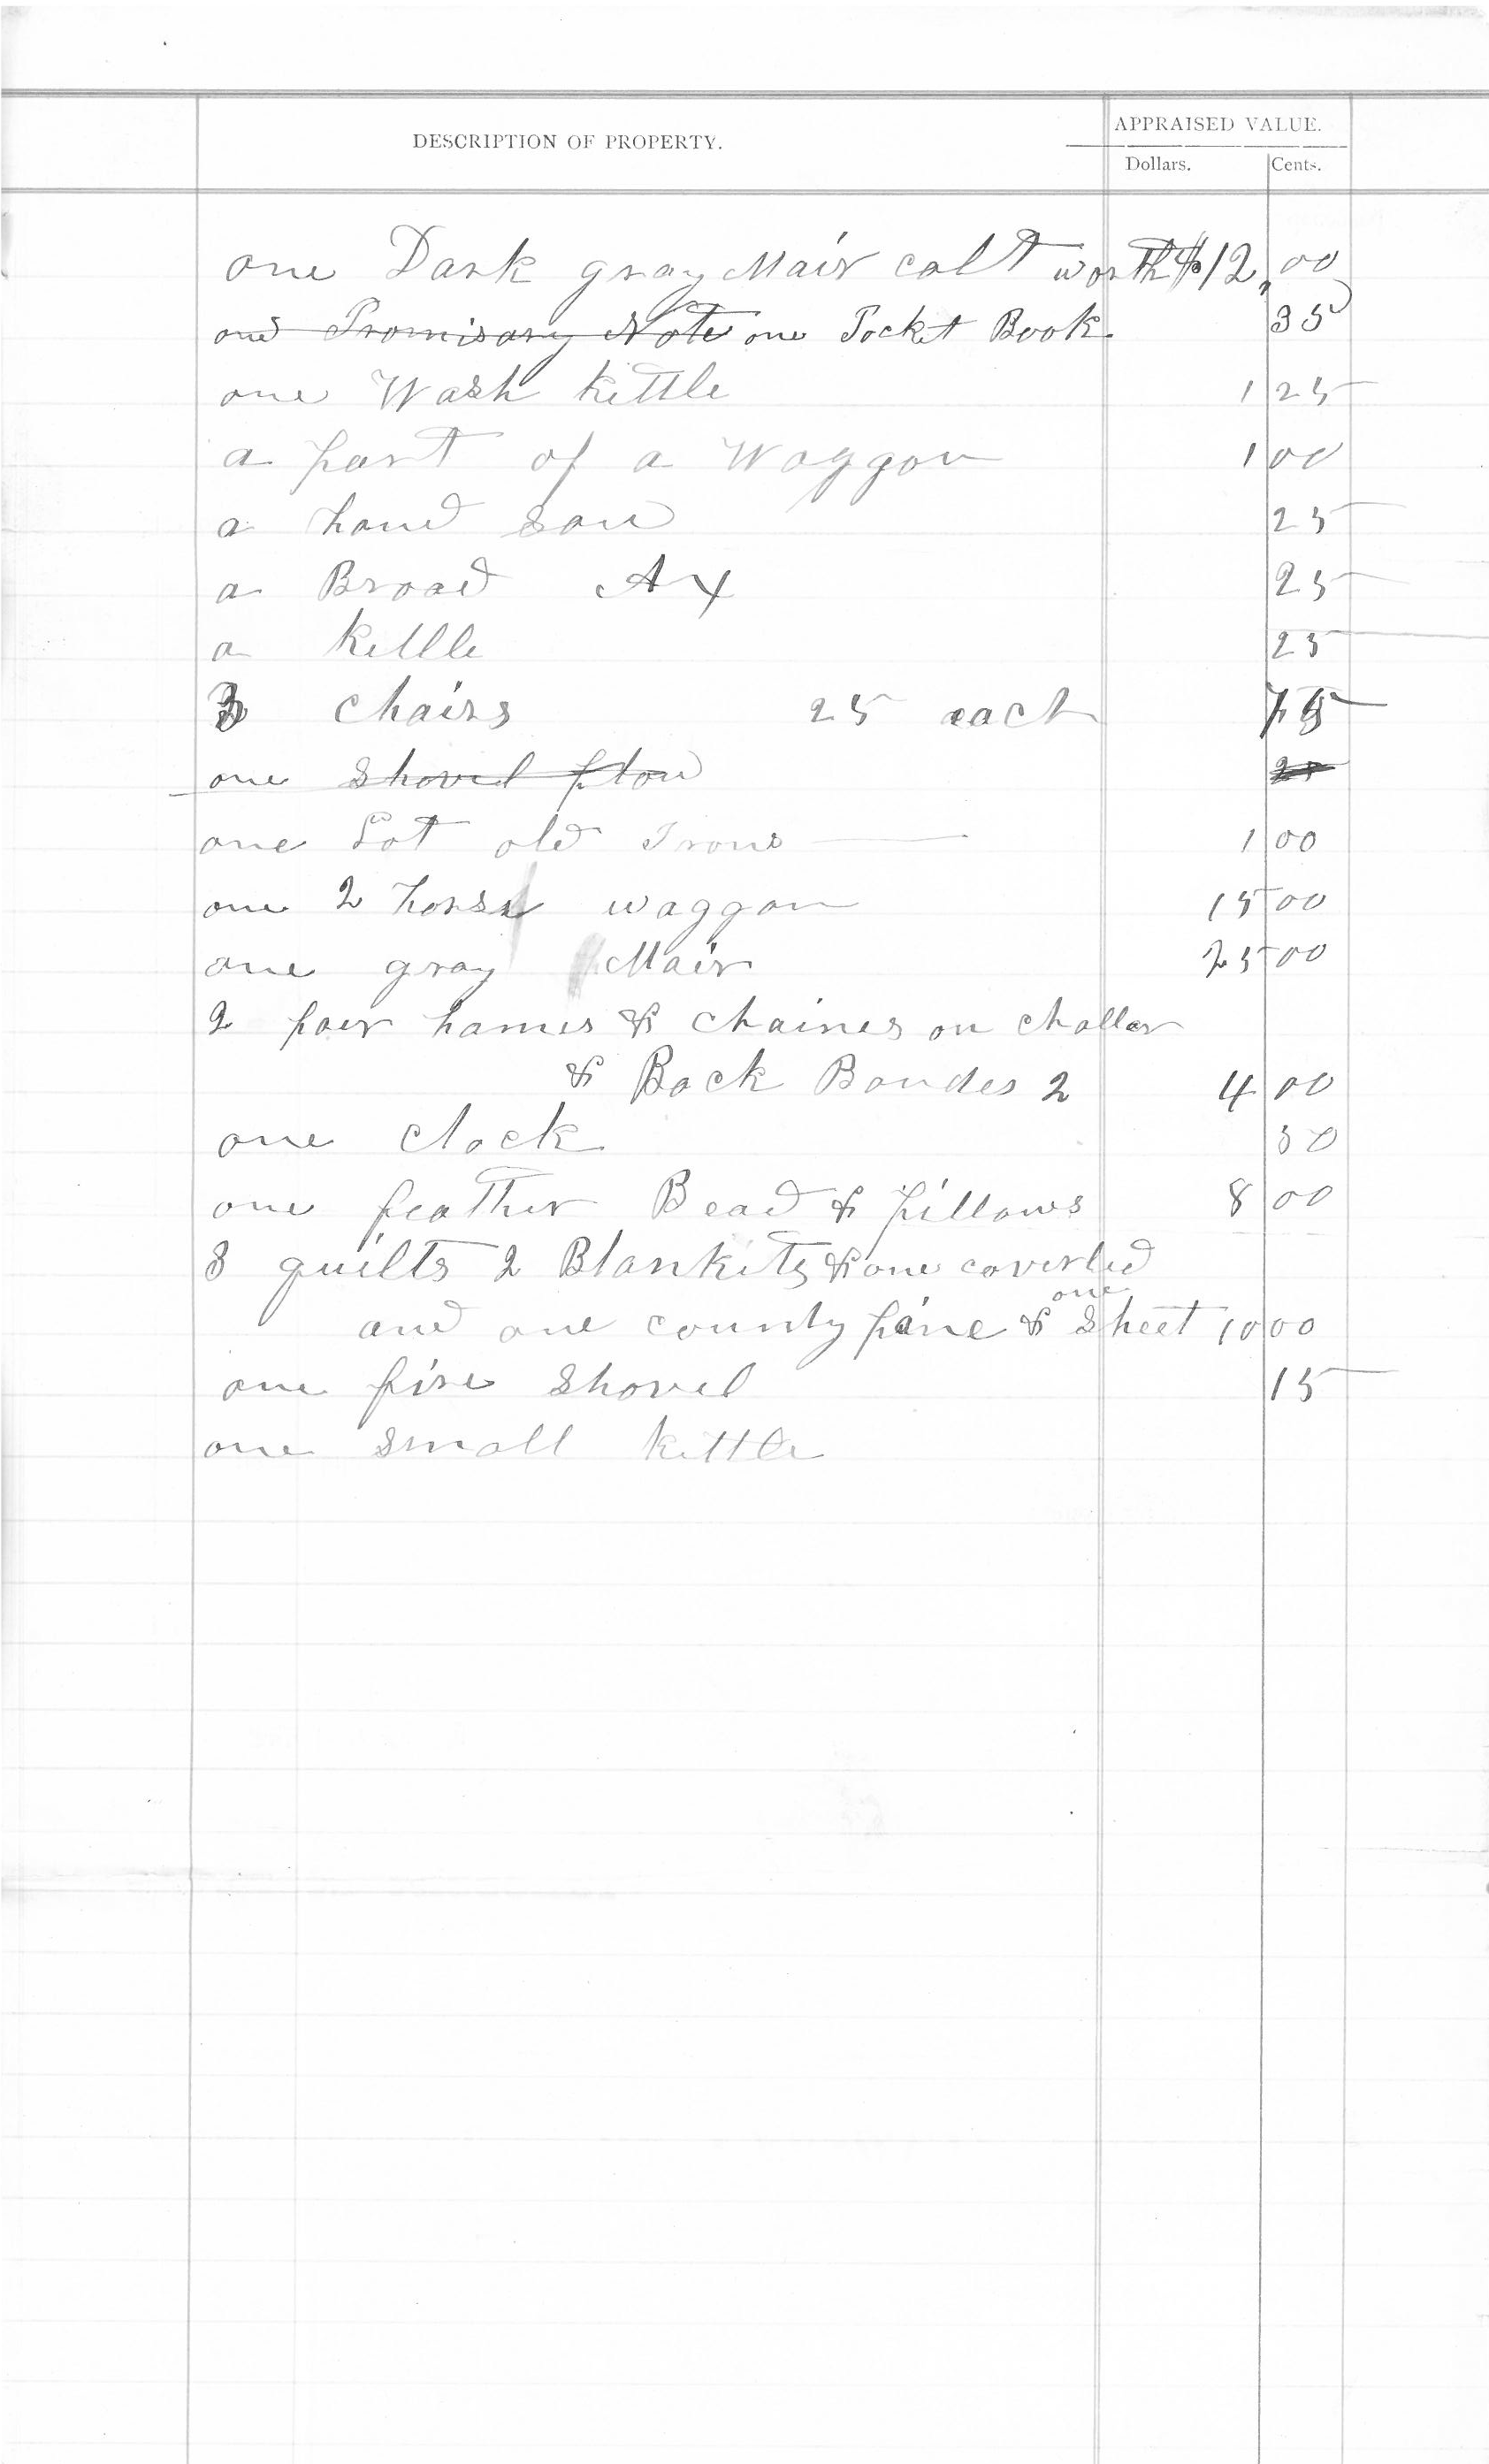 DESCRIPTION OF PROPERTY. APPRAISED VALUE.
Dollars. Cents.
one Dark gray Mair colt worth $12.00
one Promisary Note one Pocket Book 35
one Wash kettle 1 25
a part of a Waggon 1 00
a hand saw 25
a Broad Ax 25
a kettle 25
3 chairs 25 each 75
one shovel plow 25
one Lot old Irons 1 00
one 2 horse waggon 15 00
one gray Mair 25 00
2 pair hames & chaines on chollar
& Back Bandes 2 4 00
one clock 50
one feather Bead & pillows 8 00
3 quilts 2 Blankits & one coverled
and one county pane & one Sheet 10 00
one fire shovel 15
one small kittle